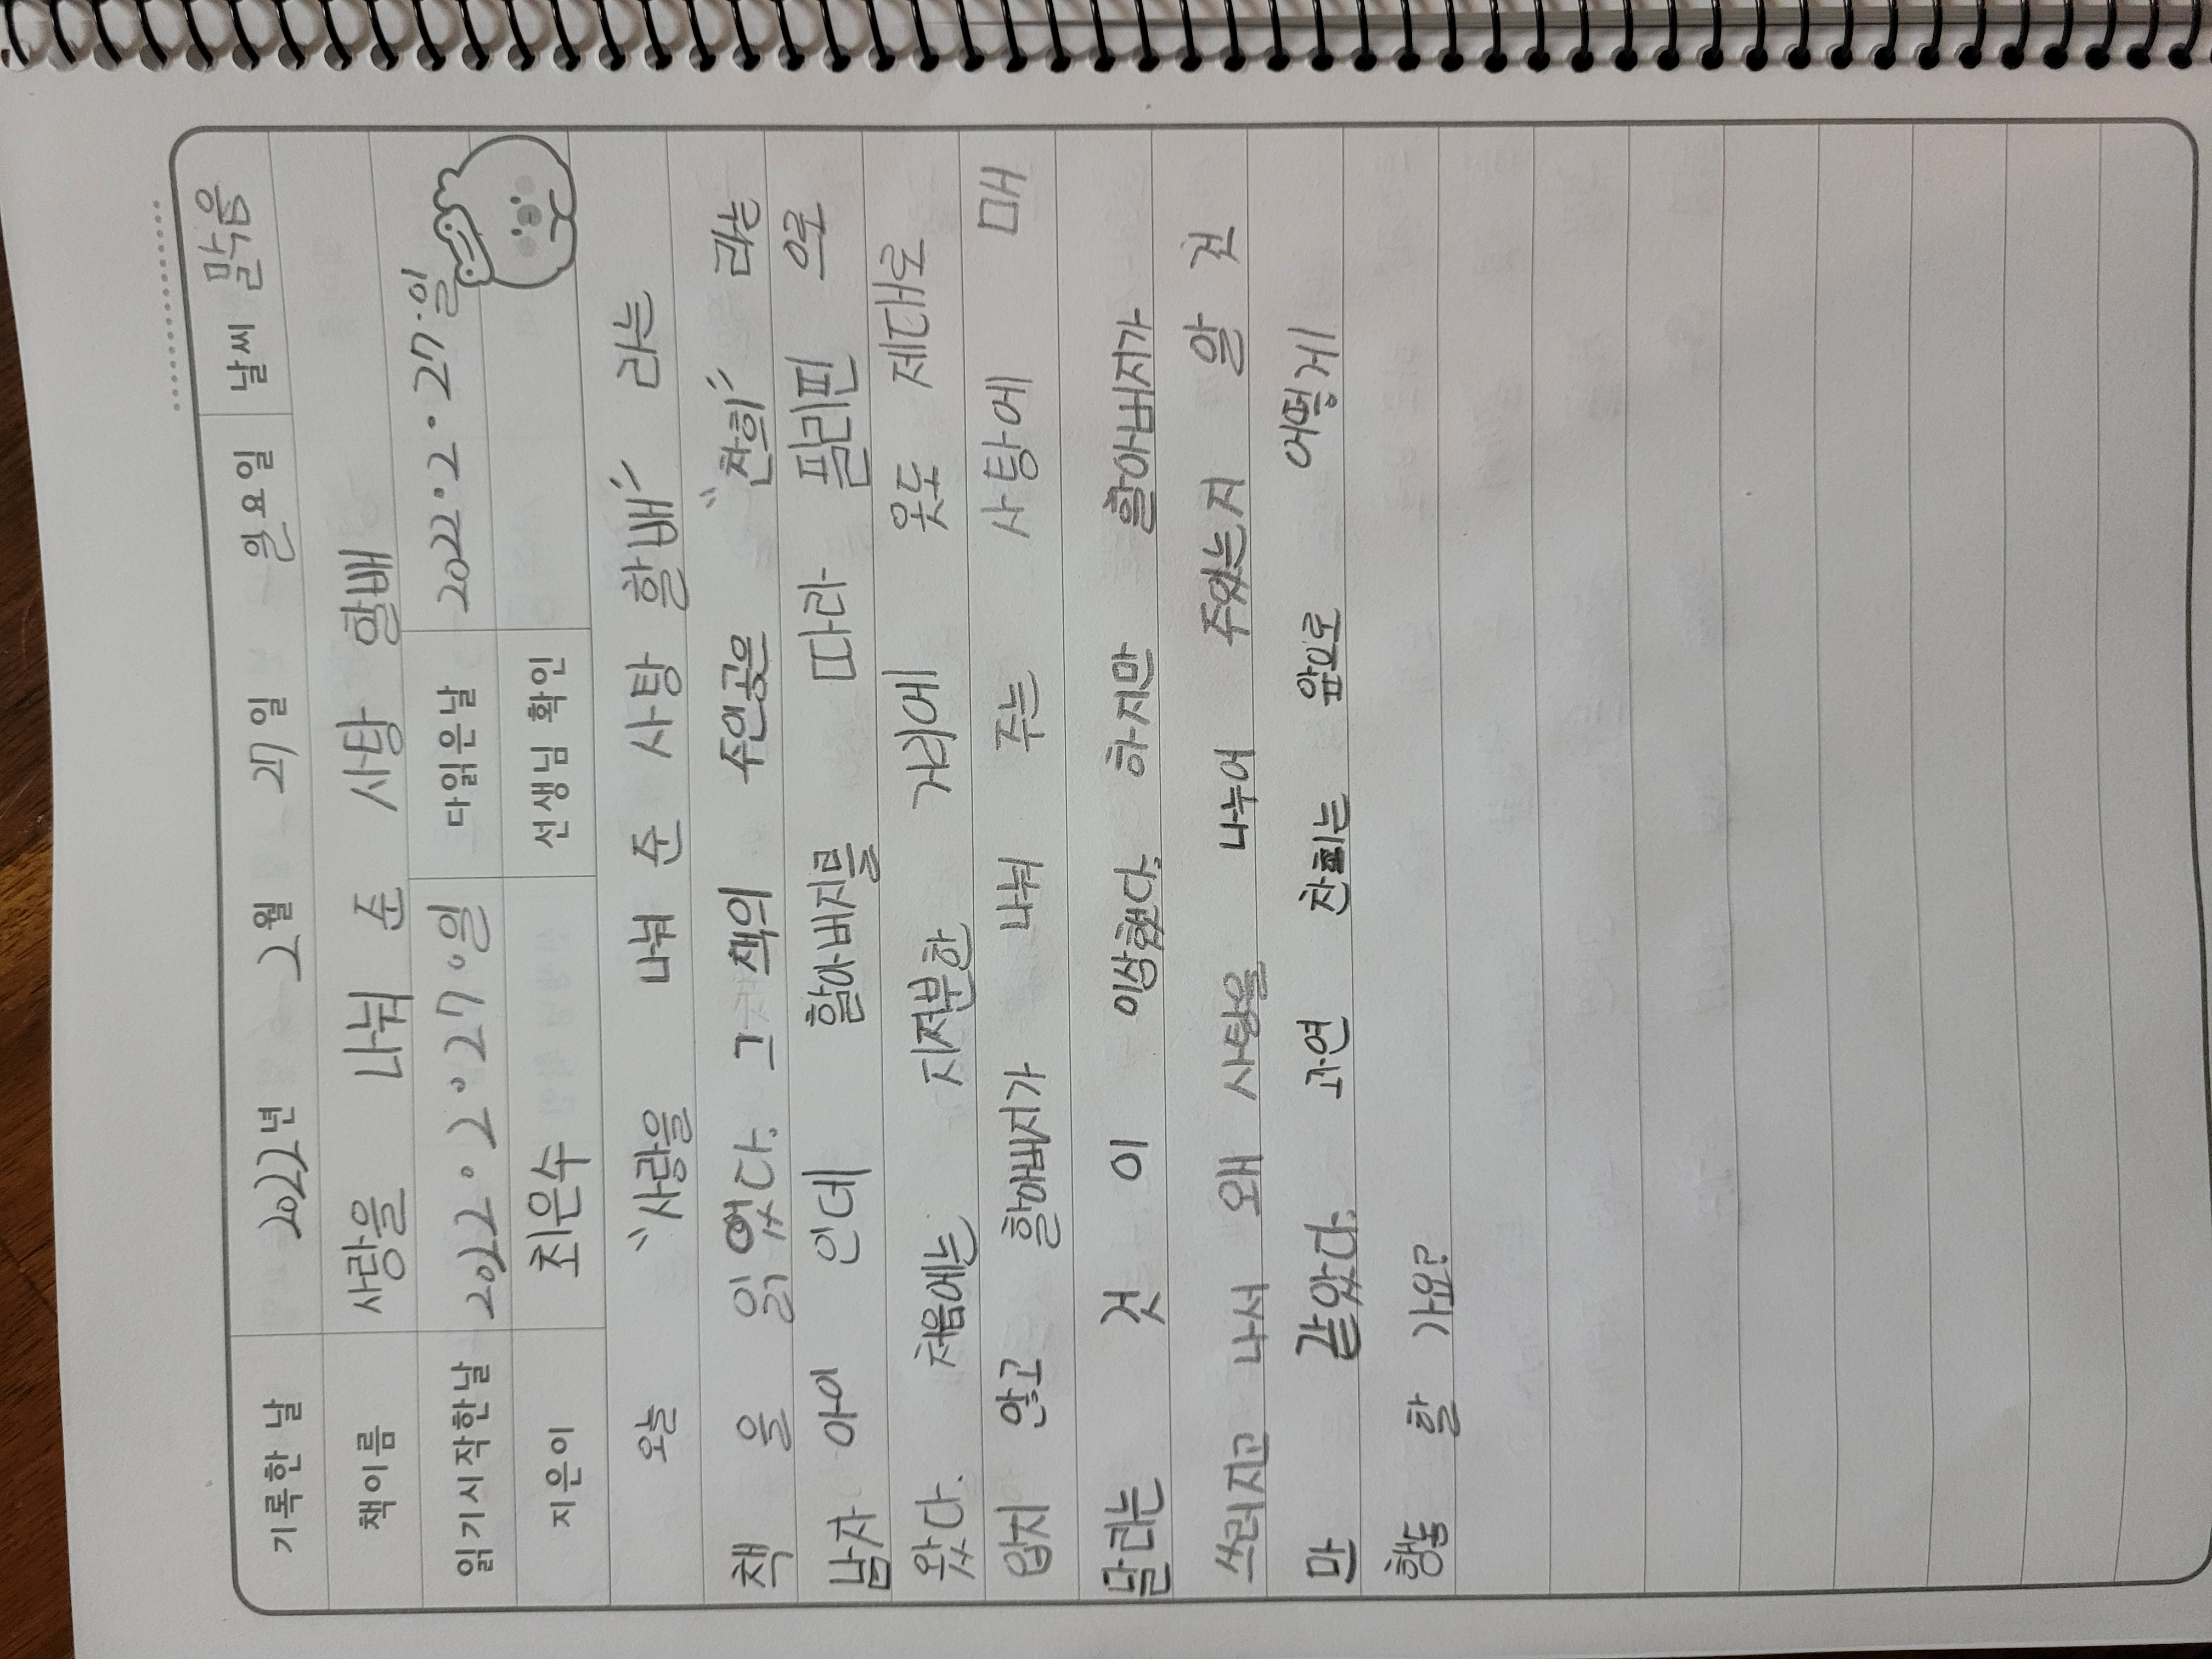 기록한 날 2022년 2월 27일 일요일 날씨 맑음
책이름 사랑을 나눠 준 사탕 할배
읽기시작한날 2022.2.27.일 다읽은날 2022.2.27.일
지은이 최은수 선생님 확인
오늘 "사랑을 나눠 준 사탕 할배" 라는
책 을 읽었다. 그 책의 주인공은 "찬희" 라는
남자 아이 인데 할아버지를 따라 필리핀 으로
왔다. 처음에는 지저분한 거리에 옷도 제대로
입지 않고 할아버지가 나눠 주는 사탕에 매
달리는 것 이 이상했다. 하지만 할아버지가
쓰러지고 나서 왜 사탕을 나누어 주었는지 알 것
만 같았다. 과연 찬희는 앞으로 어떻게
행동 할 가요?